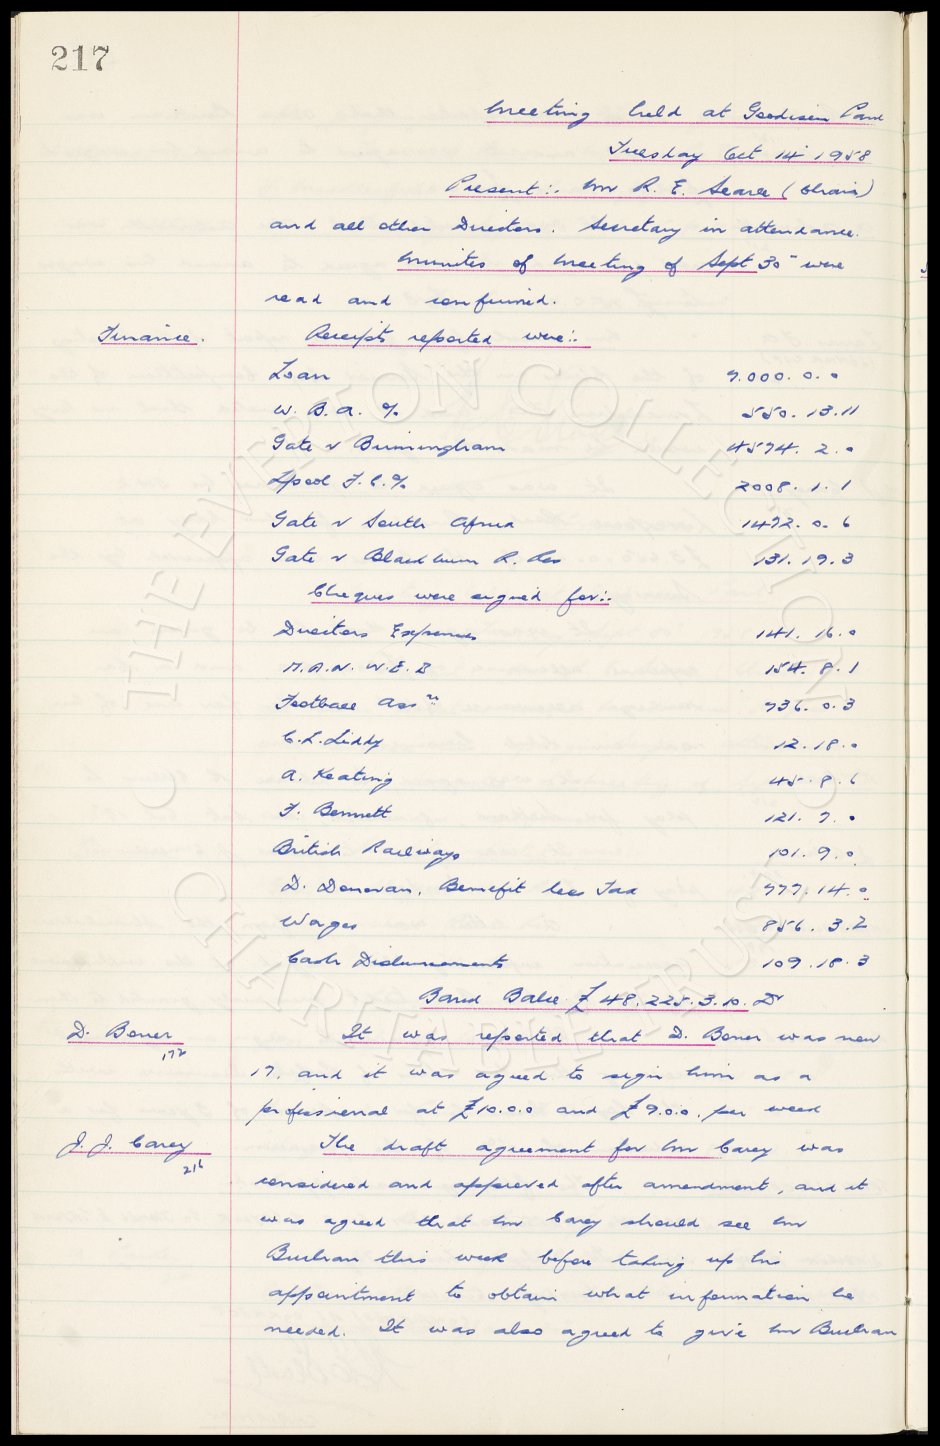 217
Meeting held at Goodison Park
Tuesday Oct 14th 1958
Present:- Mr R. E. Searle (Chair)
and all other Directors. Secretary in attendance.
Minutes of meeting of Sept 30th were
read and confirmed.
Finance. Receipts reported were:-
Loan 7.000. 0. 0
W. B. A. % 550. 13. 11
Gate v Birmingham 4574. 2. 0
Lpool F. C. % 2008. 1. 1
Gate v South Africa 1472. 0. 6
Gate v Blackburn R. Res 131. 19. 3
Cheques were signed for:-
Directors Expenses 141. 16. 0
M.A.N.W.E.B 154. 8. 1
Football Assn 736. 0. 3
C. L. Liddy 12. 18. 0
A. Keating 45. 8. 6
F. Bennett 121. 7. 0
British Railways 101. 9. 0
D. Donovan. Benefit less Tax 777. 14. 0
Wages 856. 3. 2
Cash Disbursements 109. 18. 3
Bank Balce £48.225.3.10. Dr
D. Boner It was reported that D. Boner was now
172
17, and it was agreed to sign him as a
professional at £10.0.0 and £9.0.0. per week
J. J. Carey The draft agreement for Mr Carey was
216
considered and approved after amendment, and it
was agreed that Mr Carey should see Mr
Buchan this week before taking up his
appointment to obtain what information he
needed. It was also agreed to give Mr Buchan
THE EVERTON COLLECTION
CHARITABLE TRUST